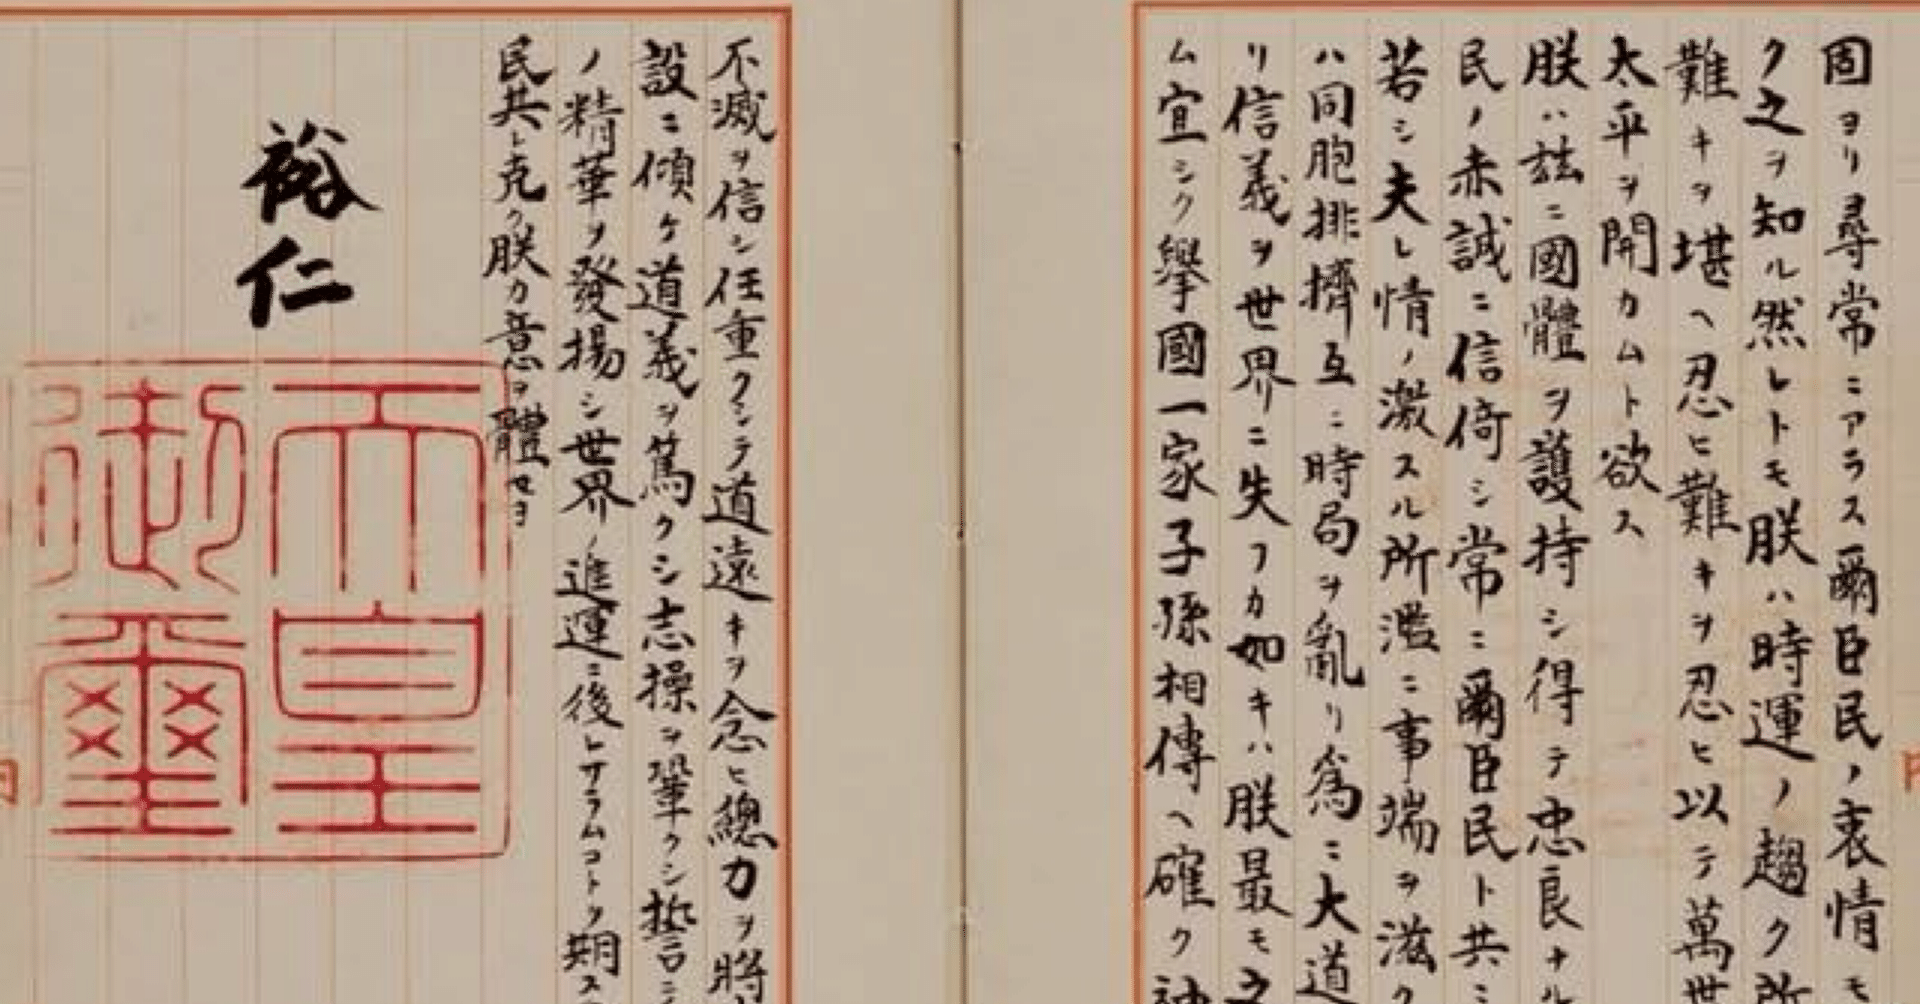 固ヨリ尋常ニアラス爾臣民ノ衷情モ
ク之ヲ知ル然レトモ朕ハ時運ノ趨ク所
難キヲ堪ヘ忍ヒ難キヲ忍ヒ以テ萬世
太平ヲ開カムト欲ス
朕ハ茲ニ國體ヲ護持シ得テ忠良ナル
民ノ赤誠ニ信倚シ常ニ爾臣民ト共ニ
若シ夫レ情ノ激スル所濫ニ事端ヲ滋ク
ハ同胞排擠互ニ時局ヲ亂リ爲ニ大道
リ信義ヲ世界ニ失フカ如キハ朕最モ之
ム宜シク擧國一家子孫相傳ヘ確ク神
不滅ヲ信シ任重クシテ道遠キヲ念ヒ總力ヲ將
設ニ傾ケ道義ヲ篤クシ志操ヲ鞏クシ誓
ノ精華ヲ發揚シ世界ノ進運ニ後レサラムコトヲ期ス
民其レ克ク朕カ意ヲ體セヨ
裕仁
天皇
御璽